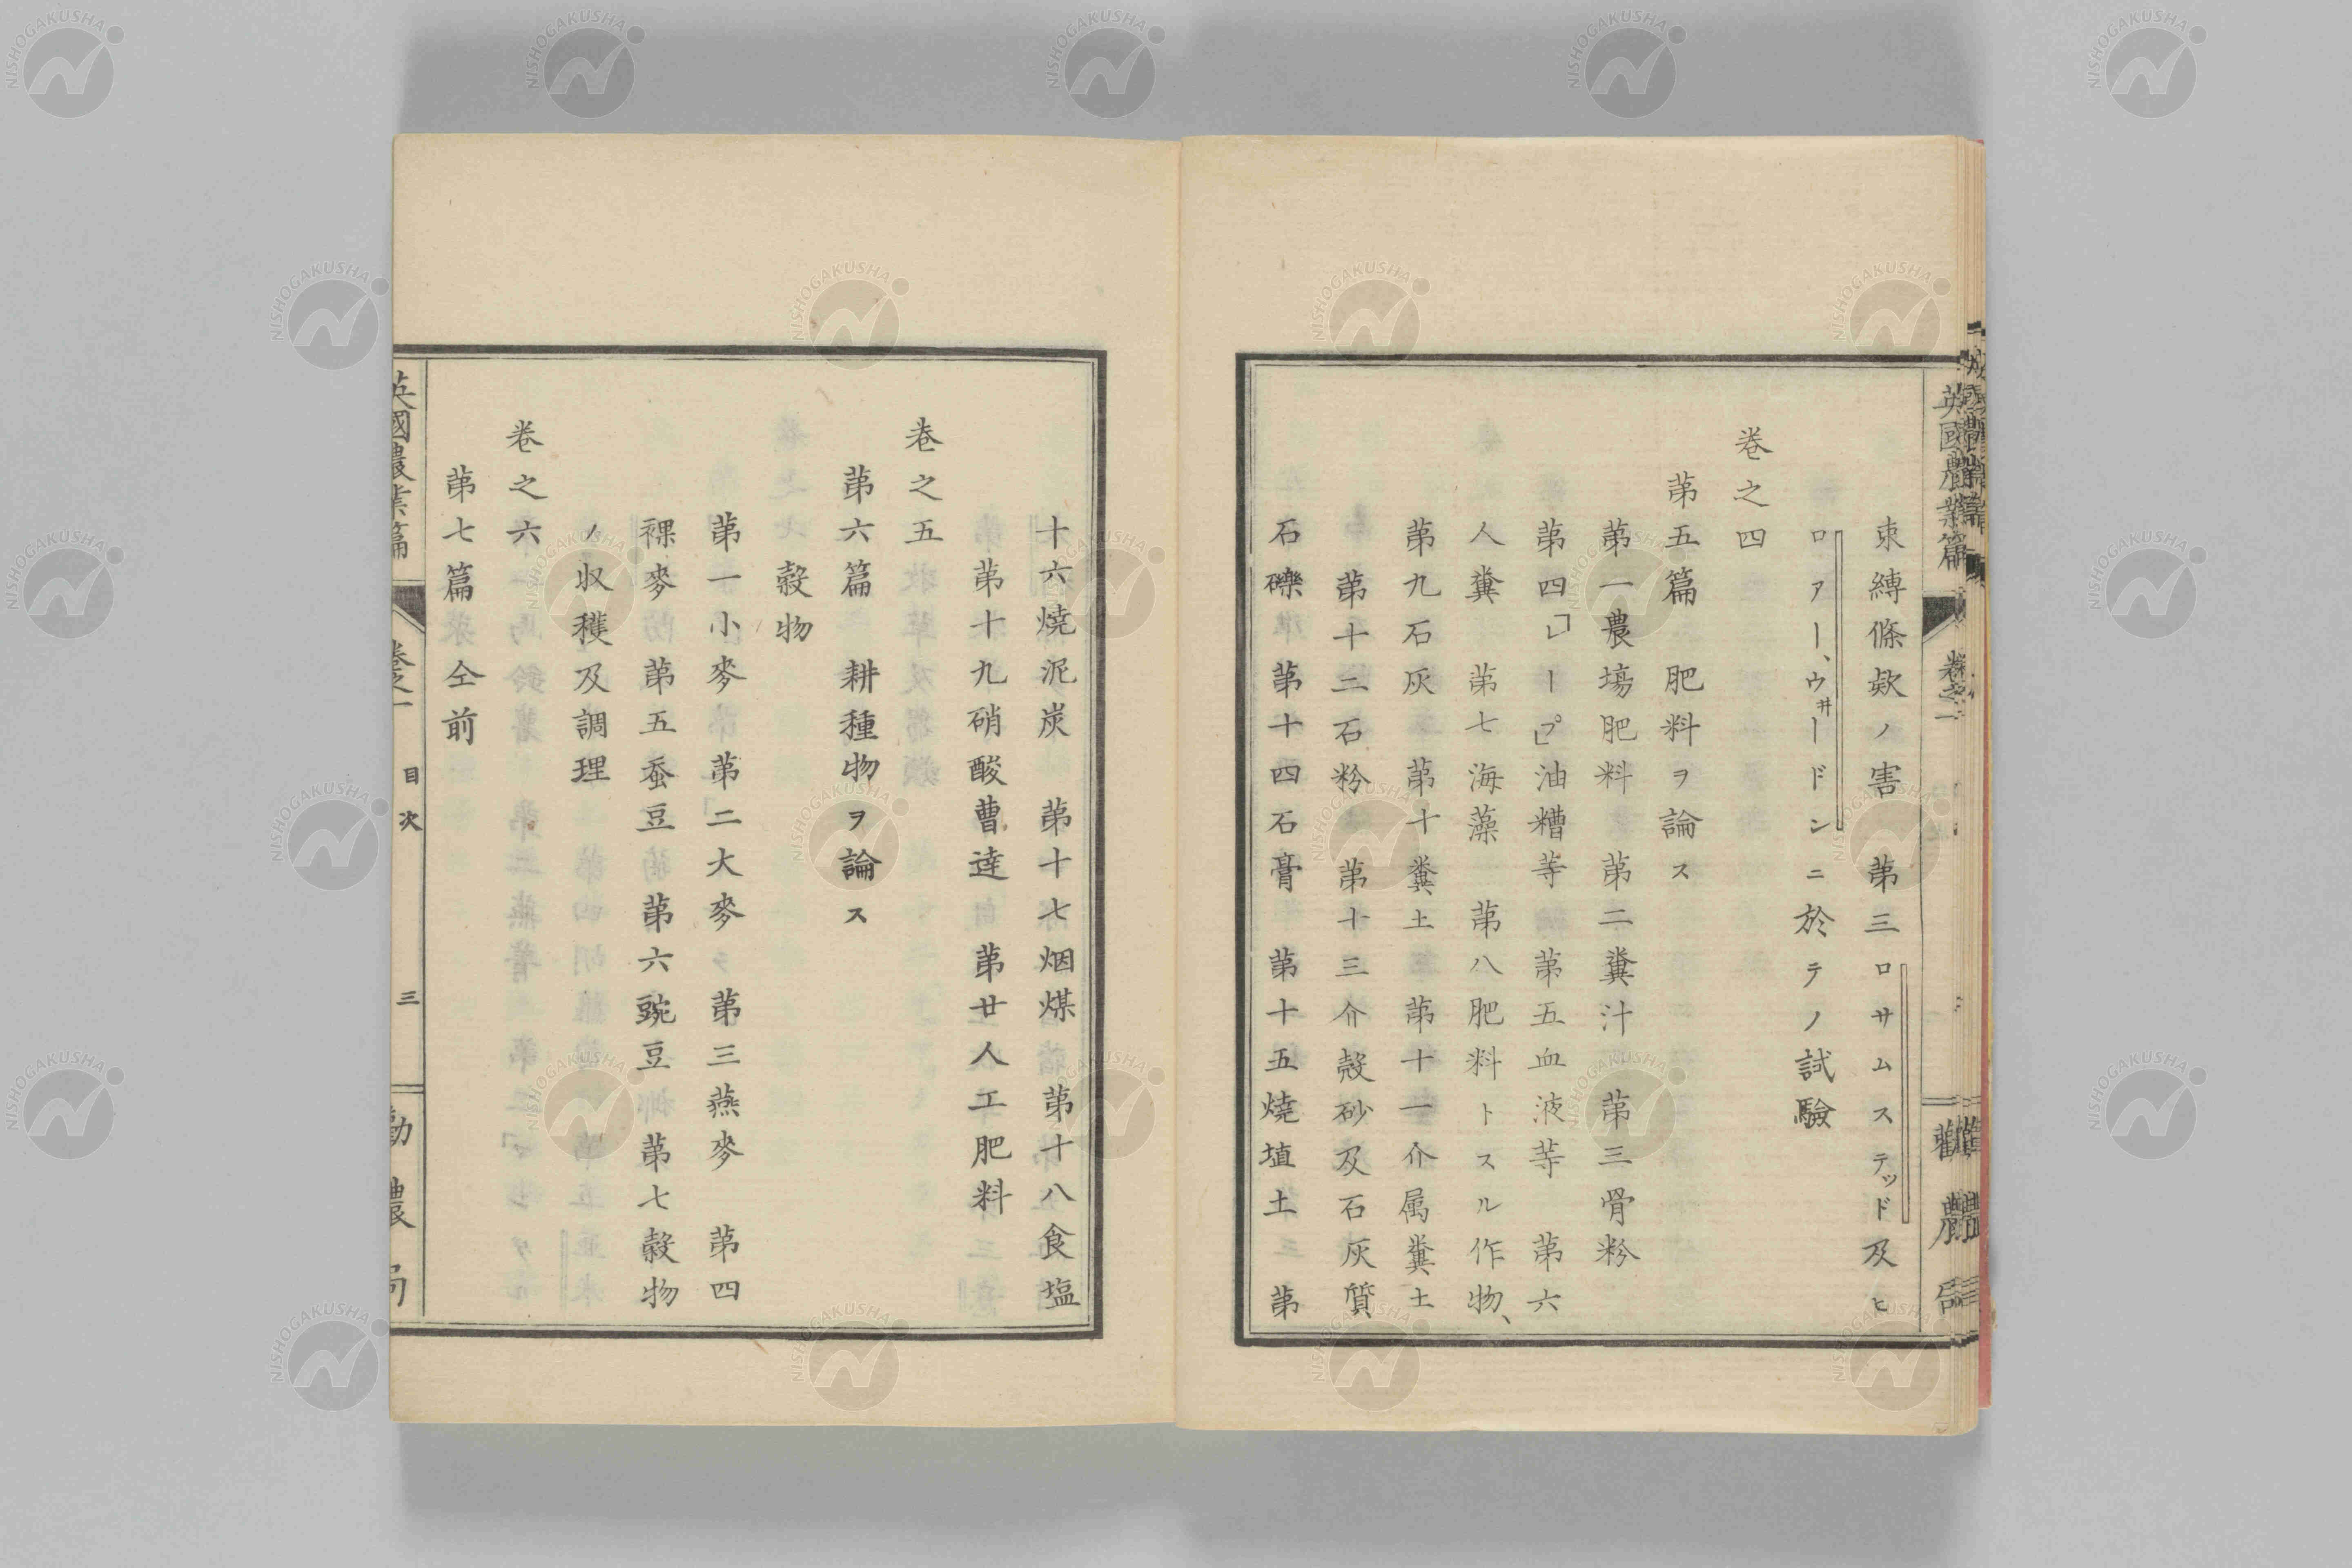 英國農業篇 卷之一 勸農局
束縛條欵ノ害 第三ロサムステッド及ヒ
ロアー、ウ井ードンニ於テノ試驗
卷之四
第五篇 肥料ヲ論ス
第一農塲肥料 第二糞汁 第三骨粉
第四「レープ」油糟等 第五血液等 第六
人糞 第七海藻 第八肥料トスル作物、
第九石灰 第十糞土 第十一介属糞土
第十二石粉 第十三介殼砂及石灰質
石礫 第十四石膏 第十五燒埴土 第
十六燒泥炭 第十七烟煤 第十八食塩
第十九硝酸曹達 第廿人工肥料
卷之五
第六篇 耕種物ヲ論ス
穀物
第一小麥 第二大麥 第三燕麥 第四
裸麥 第五蚕豆 第六豌豆 第七穀物
ノ収穫及調理
卷之六
第七篇 仝前
英國農業篇 卷之一 目次 三 勸農局
NISHOGAKUSHA